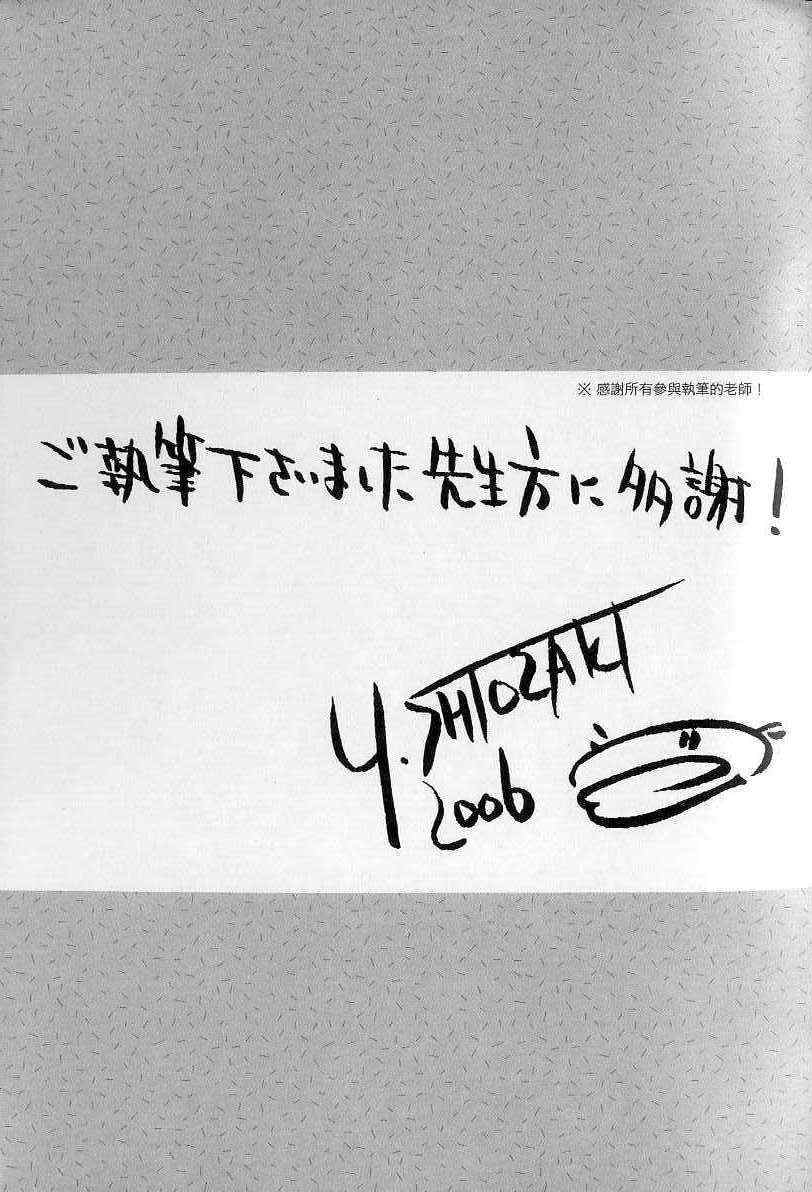 ※ 感謝所有參與執筆的老師！
ご執筆下さいました先生方に多謝！
Y. SHIOZAKI
2006